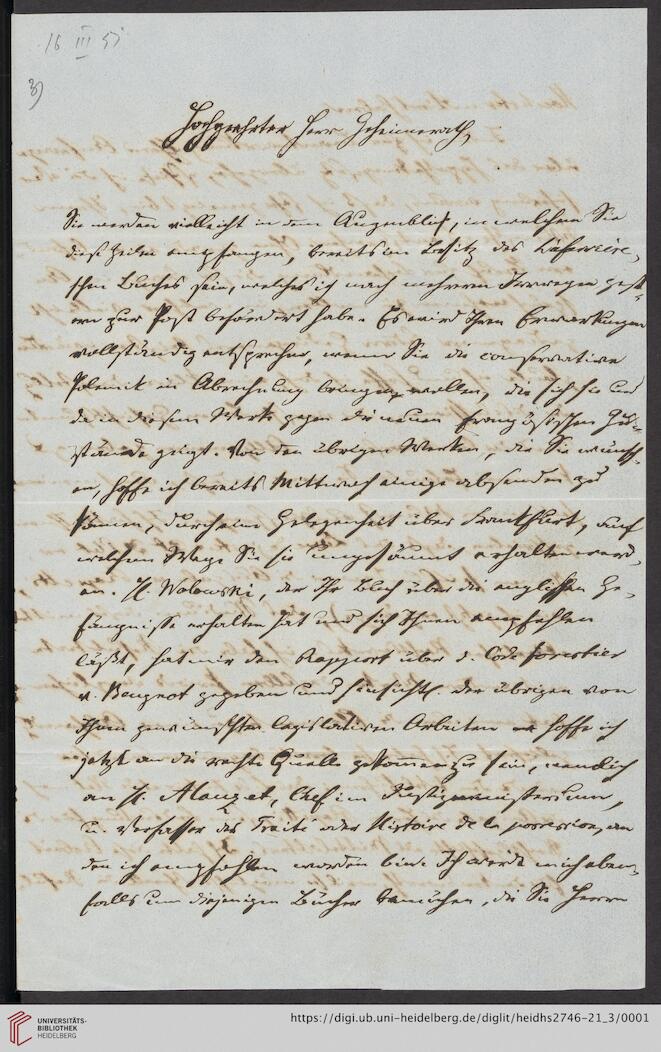 16 III 51
3)
Hochgeehrter Herr Geheimerath,
Sie werden vielleicht in dem Augenblick, in welchem Sie
diese Zeilen empfangen, bereits im Besitz des Laferrière-
schen Buches sein, welches ich nach mehreren Irrwegen gest-
ern zur Post befördert habe. Es wird Ihren Erwartungen
vollständig entsprechen, wenn Sie die conservative
Polemik in Abrechnung bringen wollen, die sich hie und
da in diesem Werke gegen die neuen französischen Zus-
tände zeigt. Von den übrigen Werken, die Sie wünsch-
en, hoffe ich bereits Mittwoch einige absenden zu
können, durch eine Gelegenheit über Frankfurt, auf
welchem Wege Sie sie ungesäumt erhalten werd-
en. H. Wolowski, der Ihr Buch über die englischen Ge-
fängnisse erhalten hat und sich Ihnen empfehlen
läßt, hat mir den Rapport über d. Code forestier
v. Beugnot gegeben und hinsichtl. der übrigen von
Ihnen gewünschten legislativen Arbeiten hoffe ich
jetzt an die rechte Quelle gekommen zu sein, nämlich
an H. Alauzet, Chef im Justizministerium,
u. Verfasser des Traité oder Histoire de la possession, an
den ich empfohlen worden bin. Ich werde mich eben-
falls um diejenigen Bücher bemühen, die Sie Herrn
UNIVERSITÄTS-
BIBLIOTHEK
HEIDELBERG
https://digi.ub.uni-heidelberg.de/diglit/heidhs2746-21_3/0001